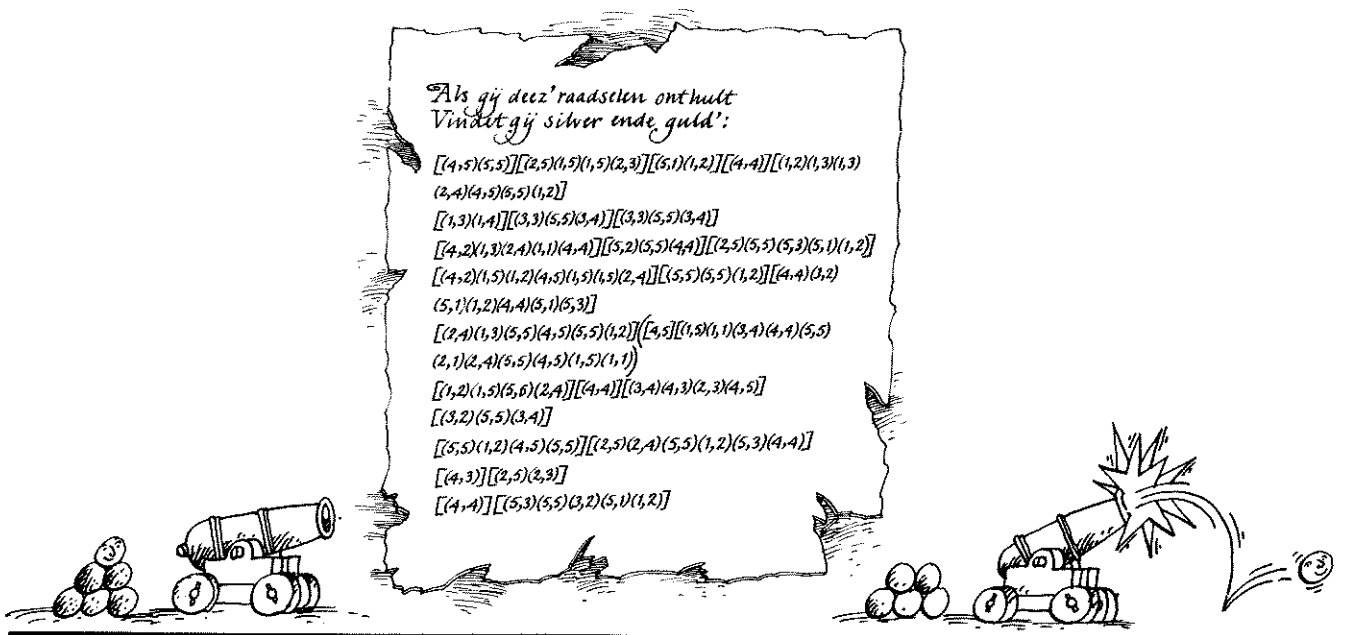 Als gij deez' raadselen onthult
Vindet gij silver ende guld':
[(4,5)(5,5)][(2,5)(1,5)(1,5)(2,3)][(5,1)(1,2)][(4,4)][(1,2)(1,3)(1,3)
(2,4)(4,5)(5,5)(1,2)]
[(1,3)(1,4)][(3,3)(5,5)(3,4)][(3,3)(5,5)(3,4)]
[(4,2)(1,3)(2,4)(1,1)(4,4)][(5,2)(5,5)(4,4)][(2,5)(5,5)(5,3)(5,1)(1,2)]
[(4,2)(1,5)(1,2)(4,5)(1,5)(1,5)(2,4)][(5,5)(5,5)(1,2)][(4,4)(3,2)
(5,1)(1,2)(4,4)(5,1)(5,3)]
[(2,4)(1,3)(5,5)(4,5)(5,5)(1,2)]([4,5][(1,5)(1,1)(3,4)(4,4)(5,5)
(2,1)(2,4)(5,5)(4,5)(1,5)(1,1))
[(1,2)(1,5)(5,6)(2,4)][(4,4)][(3,4)(4,3)(2,3)(4,5)]
[(3,2)(5,5)(3,4)]
[(5,5)(1,2)(4,5)(5,5)][(2,5)(2,4)(5,5)(1,2)(5,3)(4,4)]
[(4,3)][(2,5)(2,3)]
[(4,4)][(5,3)(5,5)(3,2)(5,1)(1,2)]